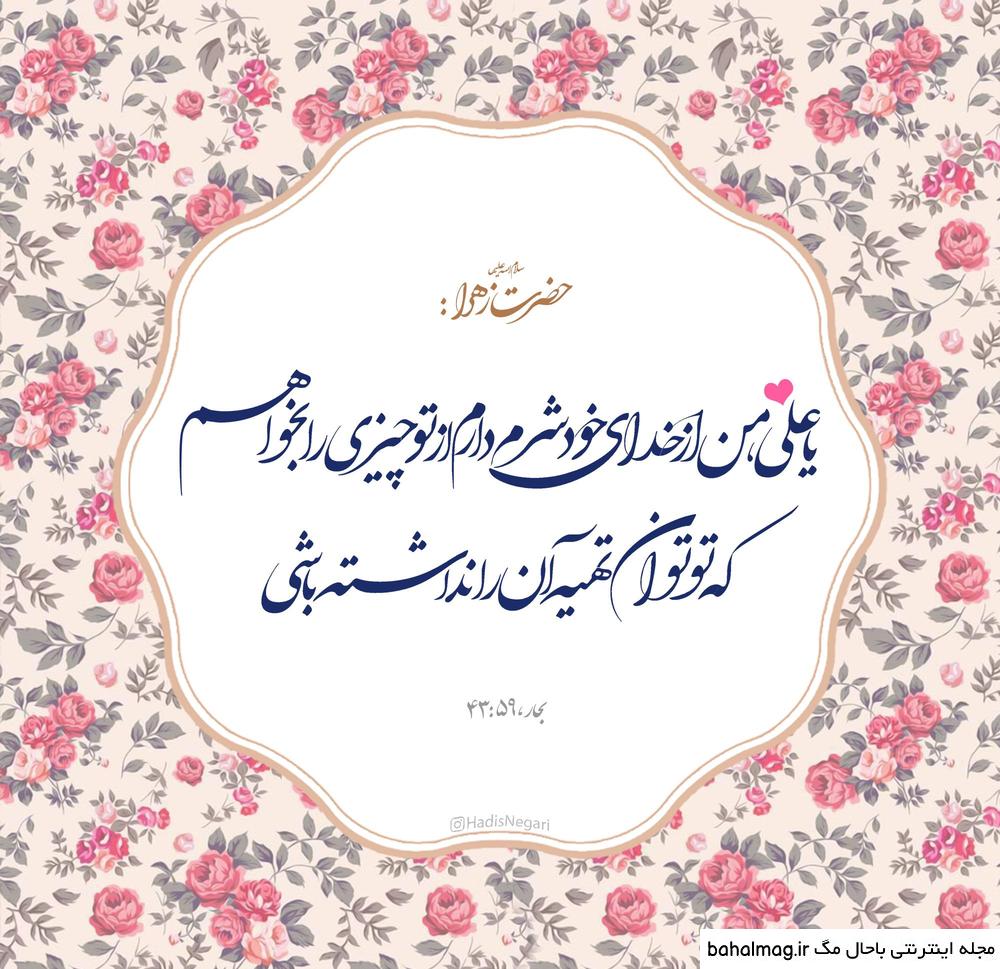 سلام الله علیها
حضرت زهرا :
یا علی، من از خدای خود شرم دارم از تو چیزی را بخواهم
که تو توان تهیه آن را نداشته باشی
بحار، ۴۳:۵۹
@HadisNegari
مجله اینترنتی باحال مگ bahalmag.ir